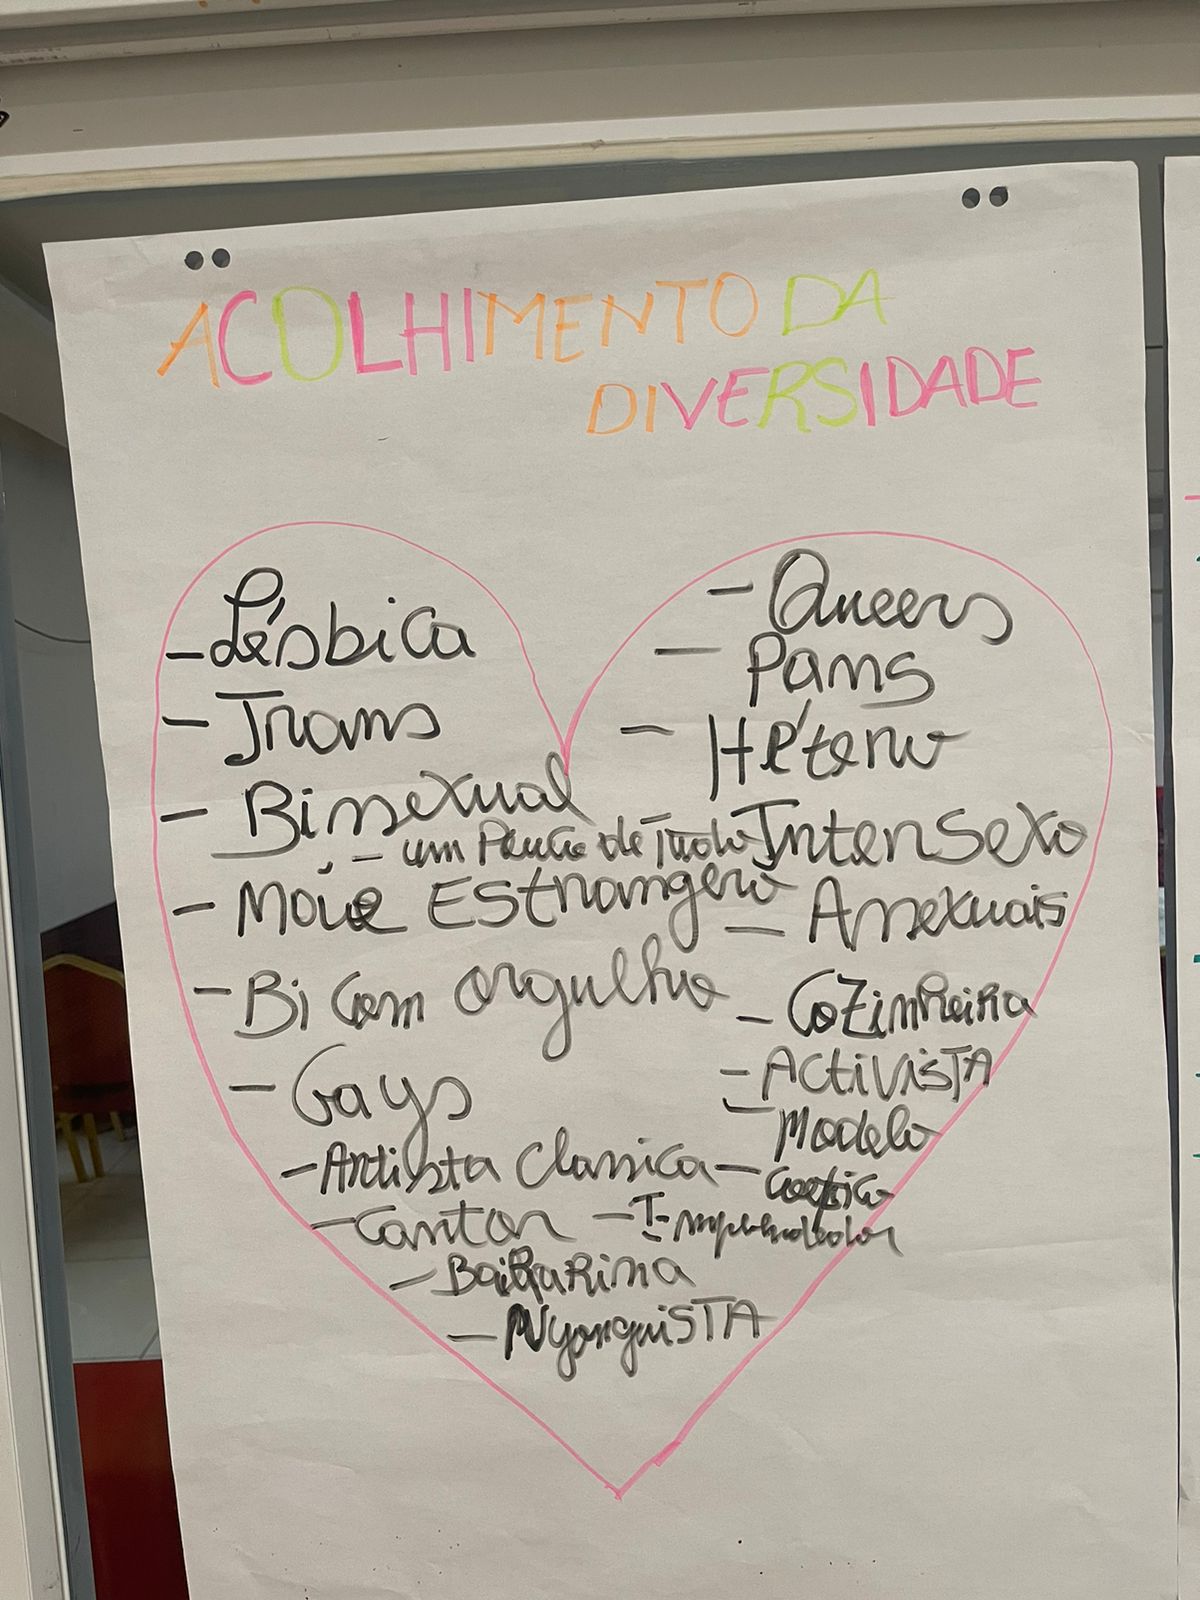 ACOLHIMENTO DA
DIVERSIDADE
- Lésbica
- Trans
- Bissexual
- um Pouco de Tudo
- Estrangero
- Bi com orgulho
- Gays
- Artista Classica
- Cantor
- Bailarina
- Queers
- Pans
- Hétero
Intersexo
- Assexuais
- Cozinheira
- ActivisTA
- Modelo
- Empreendedor